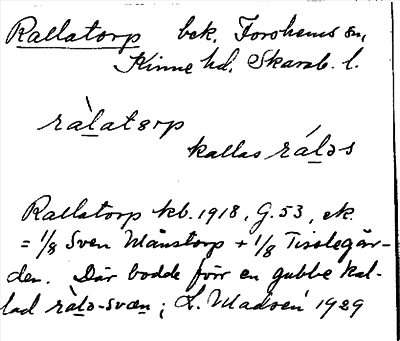 Rallatorp bek. Forshems sn,
Kinne hd. Skarab. l.
ràlatərp
kallas ráləs
Rallatorp kb. 1918, G. 53, ek.
= 1/8 Sven Månstorp + 1/8 Tisslegår-
den. Där bodde förr en gubbe kal-
lad ràlə-svæn; L. Madsén 1929